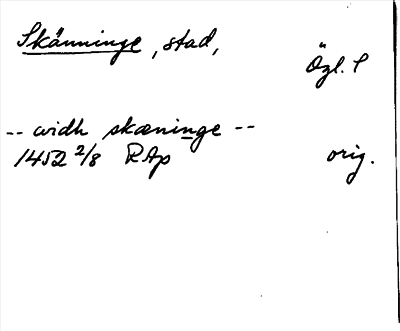 Skänninge, stad,
Ögl. S
-- widh skæninge --
1452 2/8 RAp orig.